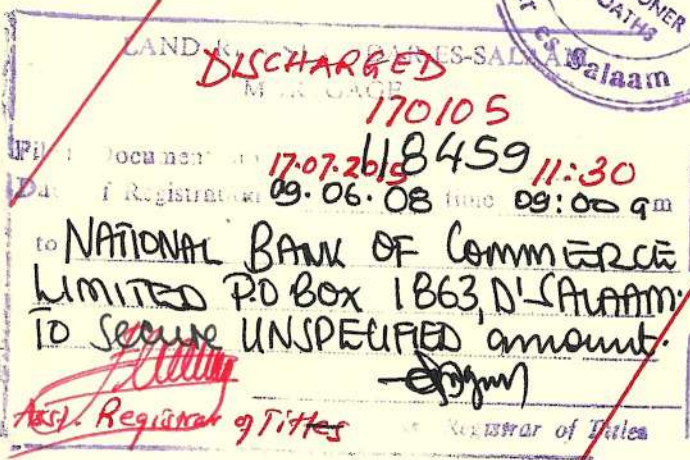 ONER
OATHS
es Salaam
LAND R ES-SALAAM
DISCHARGED
M GAGE
170105
Fil Document 118459
17.07.2015 11:30
Date of Registration 09.06.08 time 09:00 am
to NATIONAL BANK OF COMMERCE
LIMITED P.O BOX 1863, D'SALAAM.
To secure UNSPECIFIED amount.
Asst. Registrar of Titles
Registrar of Titles